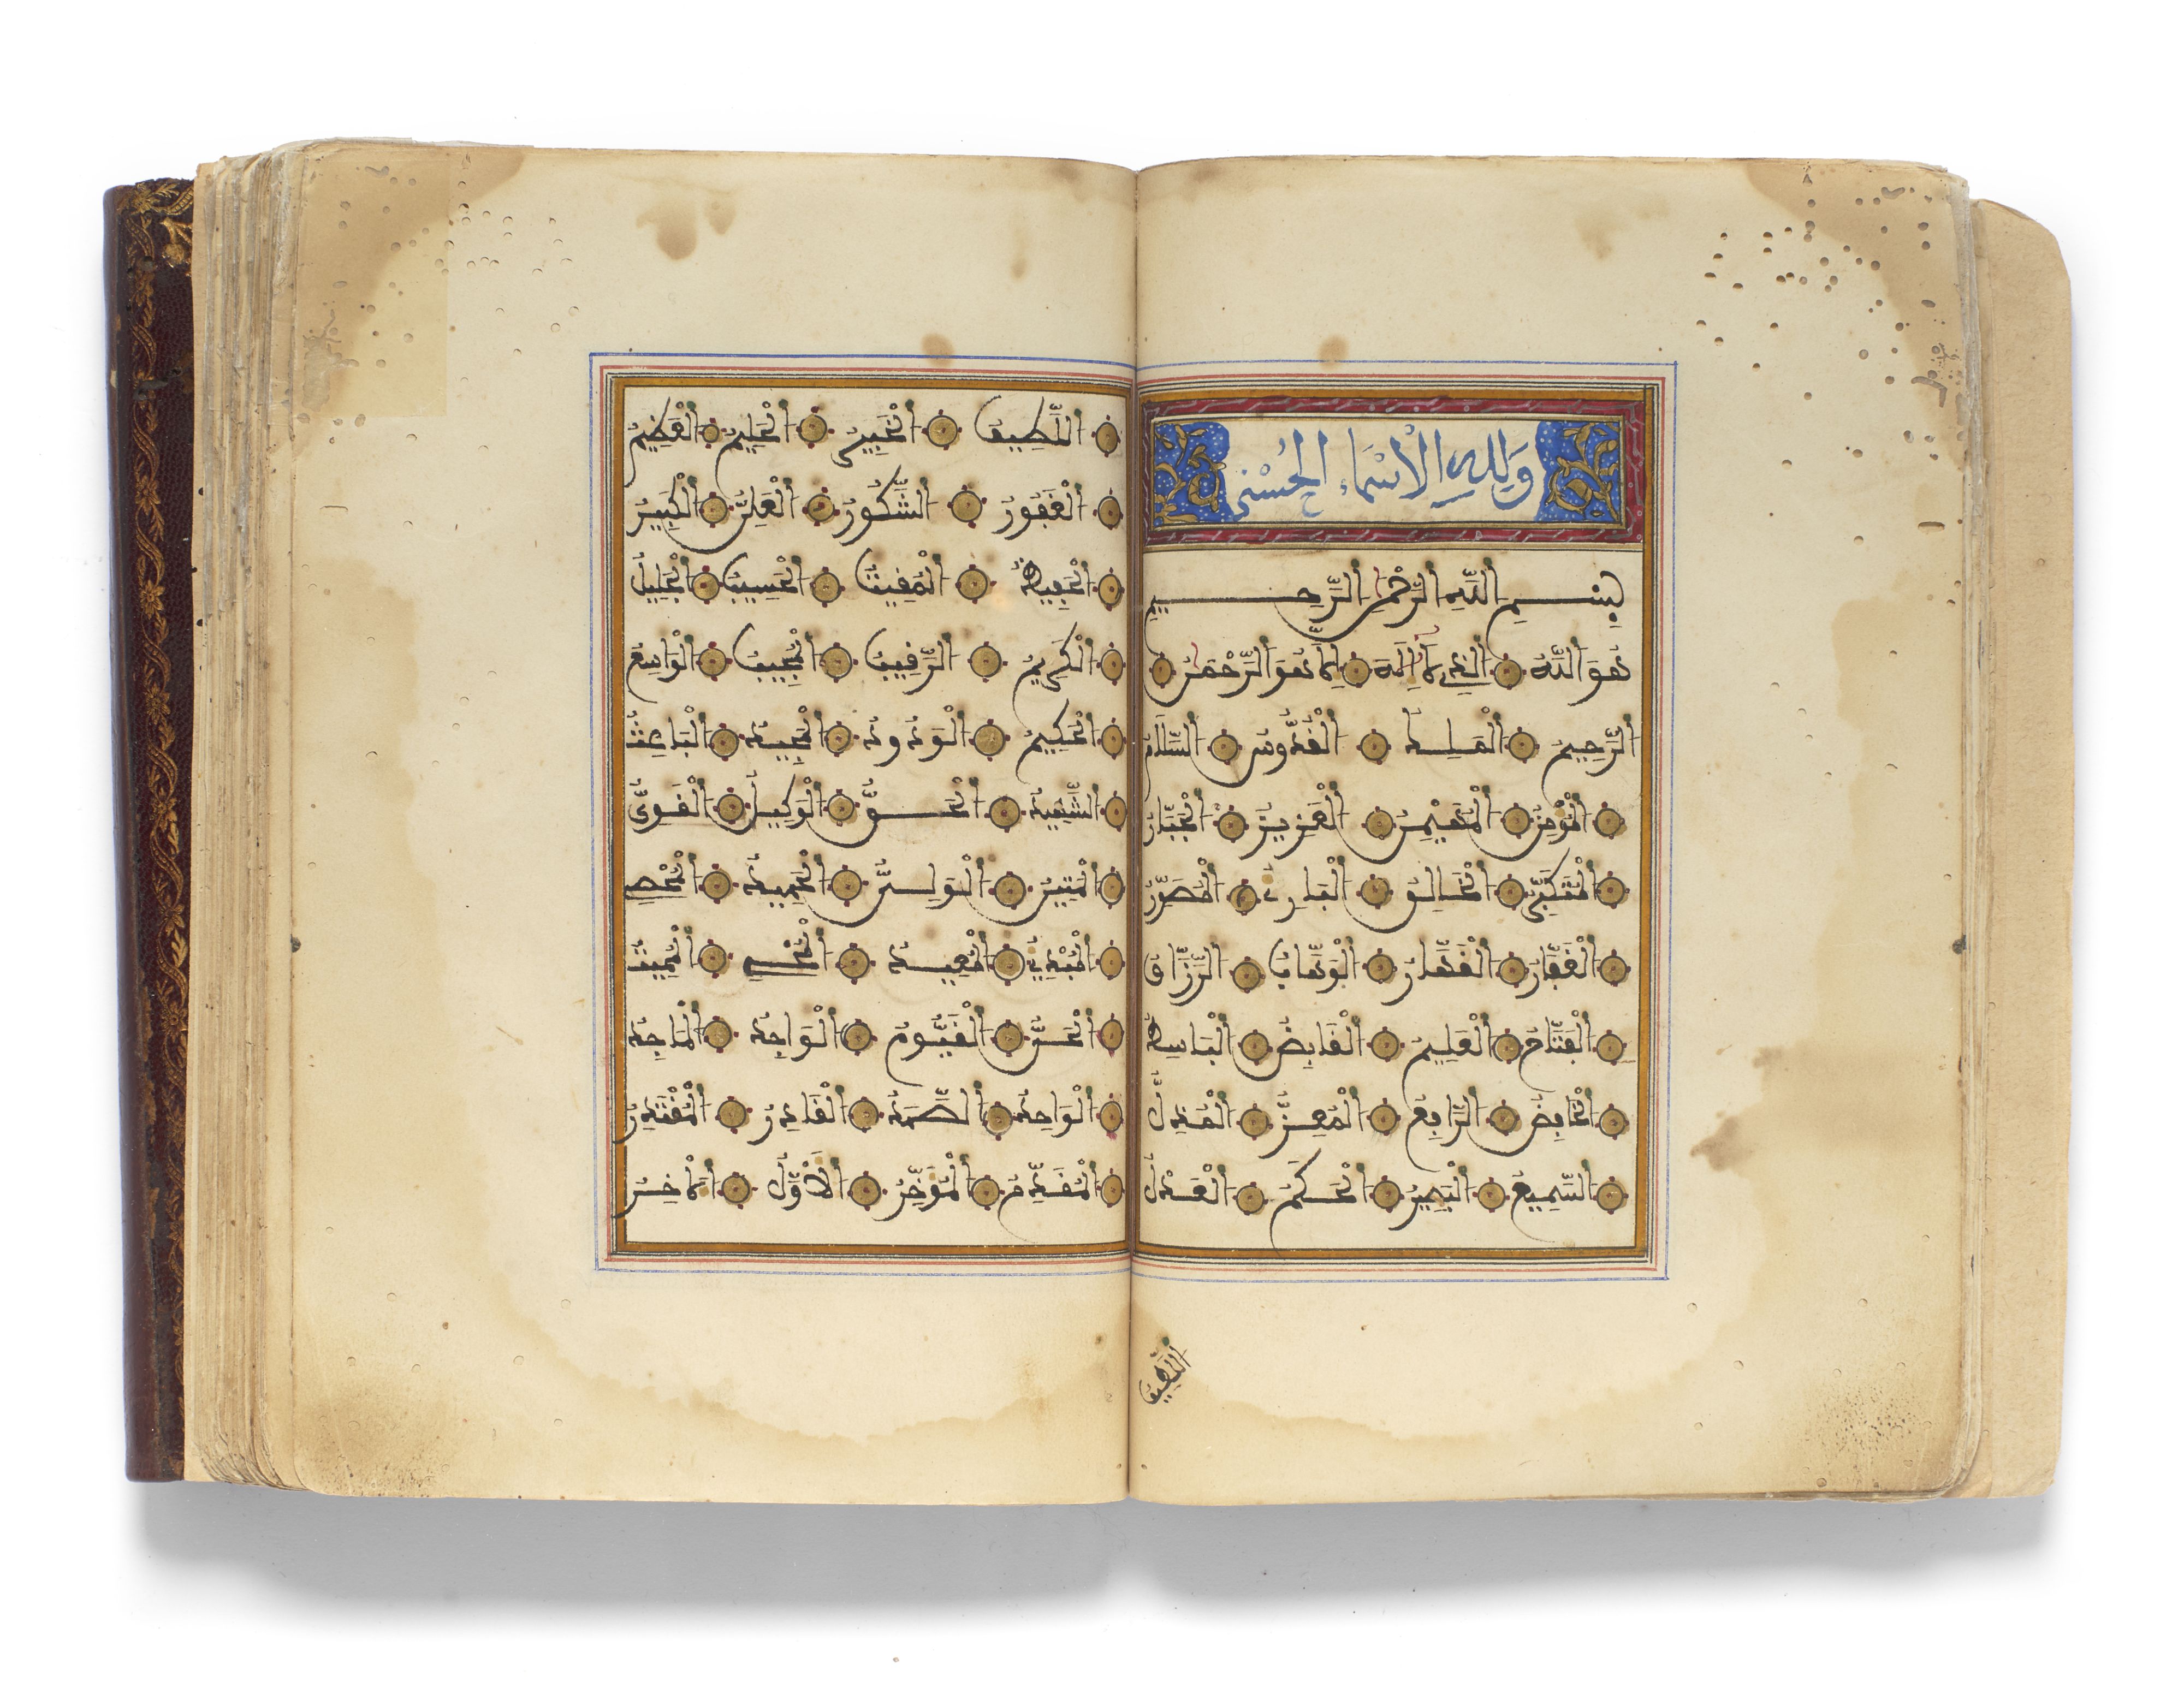 وَلِلهِ الْأَسْمَاءُ الْحُسْنَى
بِسْمِ اللَّهِ الرَّحْمَٰنِ الرَّحِيمِ
هُوَ اللَّهُ الَّذِي لَا إِلَٰهَ إِلَّا هُوَ الرَّحْمَٰنُ
الرَّحِيمُ الْمَلِكُ الْقُدُّوسُ السَّلَامُ
الْمُؤْمِنُ الْمُهَيْمِنُ الْعَزِيزُ الْجَبَّارُ
الْمُتَكَبِّرُ الْخَالِقُ الْبَارِئُ الْمُصَوِّرُ
الْغَفَّارُ الْقَهَّارُ الْوَهَّابُ الرَّزَّاقُ
الْفَتَّاحُ الْعَلِيمُ الْقَابِضُ الْبَاسِطُ
الْخَافِضُ الرَّافِعُ الْمُعِزُّ الْمُذِلُّ
السَّمِيعُ الْبَصِيرُ الْحَكَمُ الْعَدْلُ
اللَّطِيفُ
اللَّطِيفُ الْخَبِيرُ الْحَلِيمُ الْعَظِيمُ
الْغَفُورُ الشَّكُورُ الْعَلِيُّ الْكَبِيرُ
الْحَفِيظُ الْمُقِيتُ الْحَسِيبُ الْجَلِيلُ
الْكَرِيمُ الرَّقِيبُ الْمُجِيبُ الْوَاسِعُ
الْحَكِيمُ الْوَدُودُ الْمَجِيدُ الْبَاعِثُ
الشَّهِيدُ الْحَقُّ الْوَكِيلُ الْقَوِيُّ
الْمَتِينُ الْوَلِيُّ الْحَمِيدُ الْمُحْصِي
الْمُبْدِئُ الْمُعِيدُ الْمُحْيِي الْمُمِيتُ
الْحَيُّ الْقَيُّومُ الْوَاجِدُ الْمَاجِدُ
الْوَاحِدُ الصَّمَدُ الْقَادِرُ الْمُقْتَدِرُ
الْمُقَدِّمُ الْمُؤَخِّرُ الْأَوَّلُ الْآخِرُ